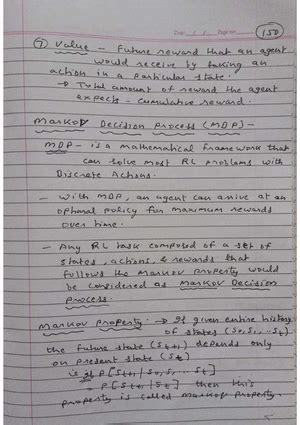 Date / / Page no. 150
⑦ Value - Future reward that an agent
would receive by taking an
action in a particular state.
→ Total amount of reward the agent
expects - cumulative reward.
Markov Decision Process (MDP) -
MDP - is a mathematical framework that
can solve most RL problems with
Discrete Actions.
- with MDP, an agent can arrive at an
optimal policy for maximum rewards
over time.
- Any RL task composed of a set of
states, actions, & rewards that
follows the Markov property would
be considered as Markov Decision
Process.
Markov Property → If given entire history
of states (S0, S1, ... St)
the future state (St+1) depends only
on present state (St)
is if P[St+1 | S0, S1, ... St]
= P[St+1 | St] then this
property is called Markov property.